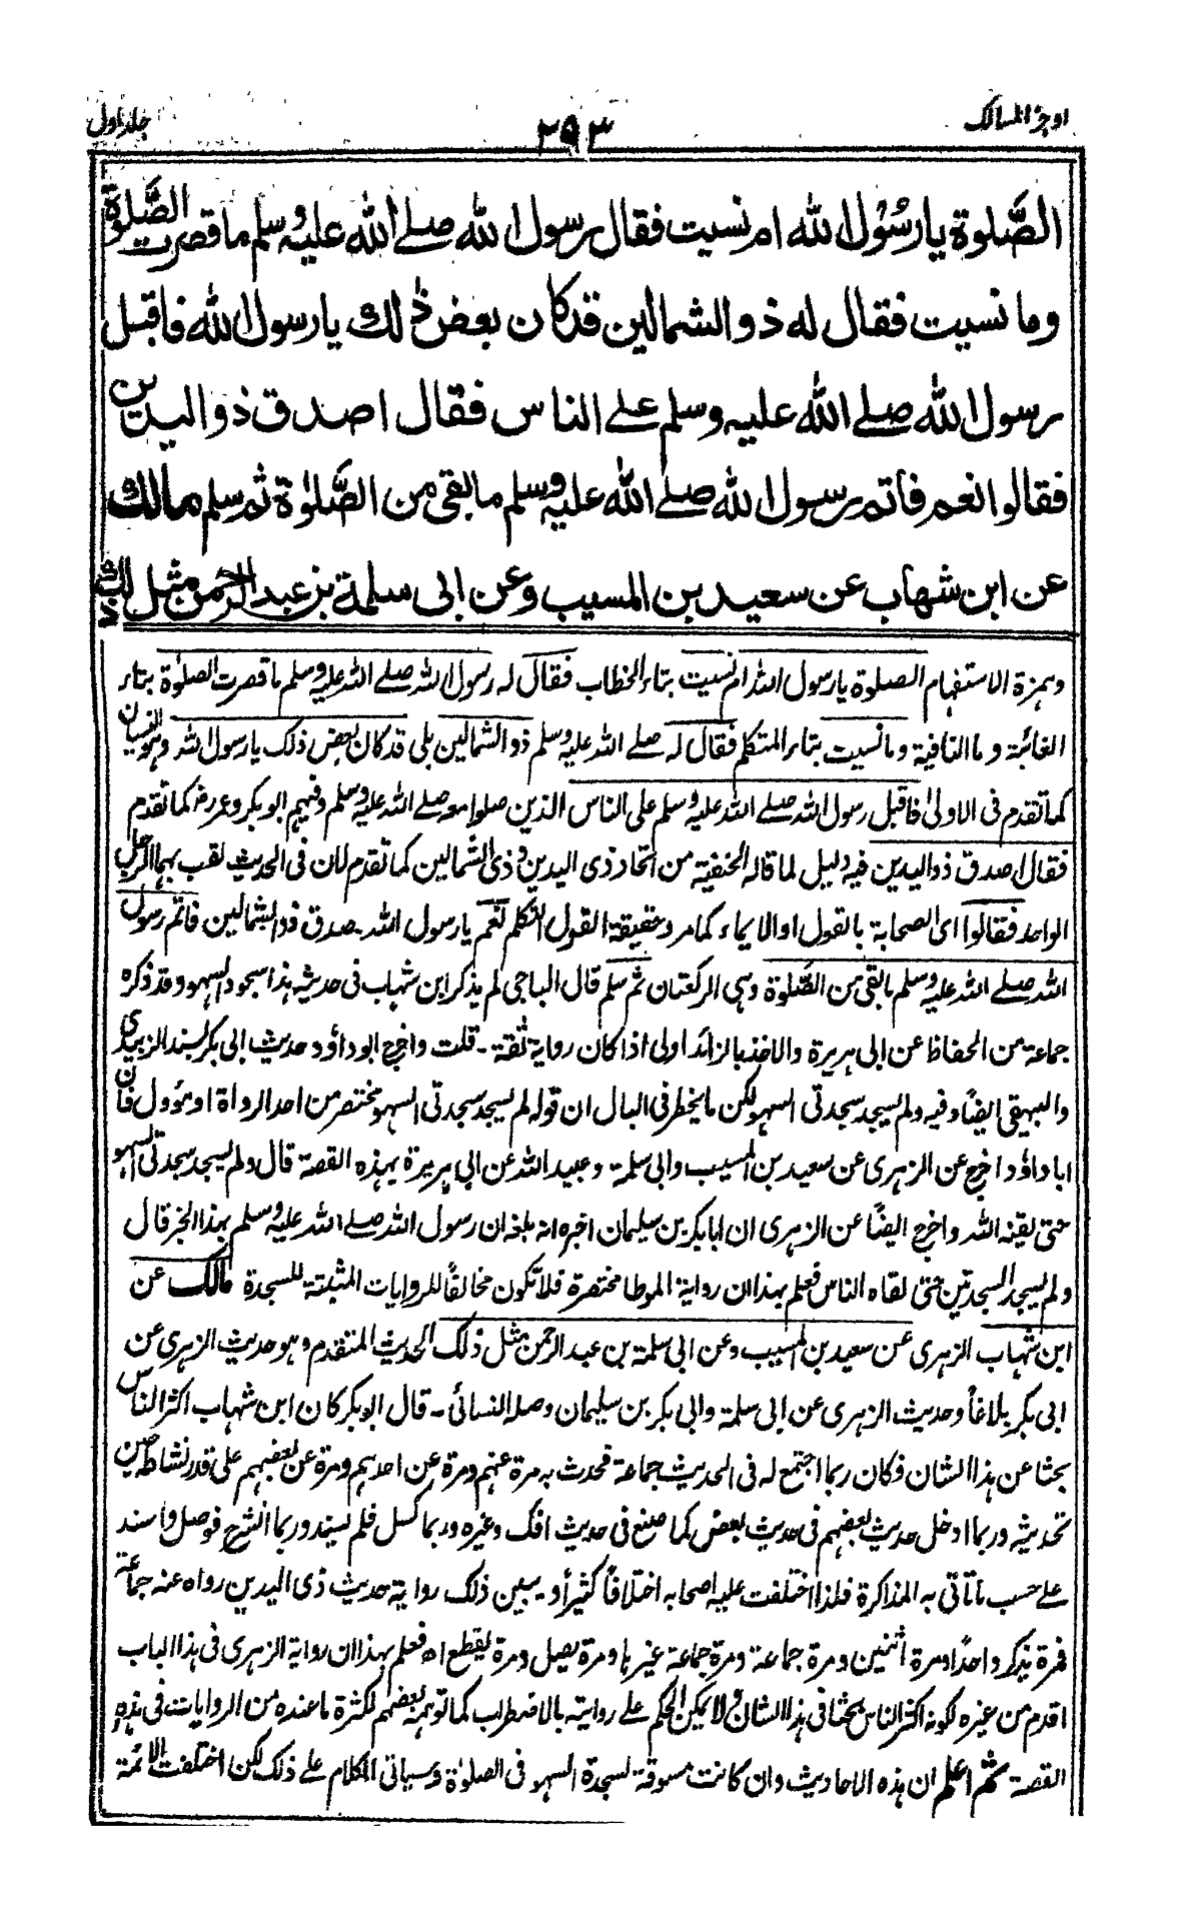 اوجز المسالك
٢٩٣
جلد اول
الصَّلوة يا رسُوْل الله ام نسيت فقال رسول الله صلے الله عليه وسلم ما قصرت الصَّلوة
وما نسيت فقال له ذو الشمالين قد كان بعض ذٰلك يا رسول الله فاقبل
رسول الله صلے الله عليه وسلم علے الناس فقال اصدق ذو اليدين
فقالوا نعم فاتم رسول الله صلے الله عليه وسلم ما بقى من الصَّلوٰة ثم سلم مالك
عن ابن شهاب عن سعيد بن المسيب وعن ابى سلمة بن عبد الرحمن مثل ذلك
وہمزة الاستفہام الصلوة يا رسول الله ام نسيت بتاء الخطاب فقال له رسول الله صلے الله عليه وسلم ما قصرت الصلوٰة بتاء
الغائبة وما النافية وما نسيت بتاء المتكلم فقال له صلے الله عليه وسلم ذو الشمالين بلى قد كان بعض ذلك يا رسول الله وہو النسيان
كما تقدم فى الاولىٰ فاقبل رسول الله صلے الله عليه وسلم على الناس الذين صلوا معه صلے الله عليه وسلم وفيہم ابو بكر وعمر رض كما تقدم
فقال اصدق ذو اليدين فيه دليل لما قاله الحنفية من اتحاد ذى اليدين و ذى الشمالين كما تقدم لان فى الحديث لقب بہما الرجل
الواحد فقالوا اى الصحابة بالقول او الايماء كما مر وحقيقة القول التكلم نعم يا رسول الله صدق ذو الشمالين فاتم رسول
الله صلے الله عليه وسلم ما بقى من الصَّلوة وہى الركعتان ثم سلم قال الباجى لم يذكر ابن شہاب فى حديثه ہذا سجود السہو وقد ذكره
جماعة من الحفاظ عن ابى ہريرة والاخذ بالزائد اولى اذا كان رواية ثقة ـ قلت واخرج ابو داؤد حديث ابى بكر بسند الزبيدى
والبيہقى ايضًا وفيه ولم يسجد سجدتى السہو لكن ما يخطر فى البال ان قوله لم يسجد سجدتى السہو مختصر من احد الرواة او مؤول فان
ابا داؤد اخرج عن الزہرى عن سعيد بن المسيب وابى سلمة وعبيد الله عن ابى ہريرة بہذه القصة قال ولم يسجد سجدتى السہو
حتى يقنه الله واخرج ايضًا عن الزہرى ان ابا بكر بن سليمان اخبره انه بلغه ان رسول الله صلے الله عليه وسلم بہذا الخبر قال
ولم يسجد السجدتين حتى لقاه الناس فعلم بہذا ان رواية الموطا مختصرة فلا تكون مخالفاً للروايات المثبتة للسجدة مالك عن
ابن شہاب الزہرى عن سعيد بن المسيب وعن ابى سلمة بن عبد الرحمن مثل ذلك الحديث المتقدم وہو حديث الزہرى عن
ابى بكر بلاغاً وحديث الزہرى عن ابى سلمة وابى بكر بن سليمان وصله النسائى ـ قال ابو بكر كان ابن شہاب اكثر الناس
بحثا عن ہذا الشان فكان ربما اجتمع له فى الحديث جماعة فحدث به مرة عنہم ومرة عن احدہم ومرة عن بعضہم على قدر نشاطه حين
تحديثه وربما ادخل حديث بعضہم فى حديث بعض كما صنع فى حديث افك وغيره وربما كسل فلم يسند وربما انشرح فوصل واسند
علے حسب ما تأتى به المذاكرة فلذا اختلفت عليه اصحابه اختلافاً كثيراً ويبين ذلك رواية حديث ذى اليدين رواه عنه جماعة
فمرة يذكر واحدًا ومرة اثنين ومرة جماعة ومرة جماعة غيرہا ومرة يصل ومرة يقطع اھ فعلم بہذا ان رواية الزہرى فى ہذا الباب
اقدم من غيره لكونه اكثر الناس بحثا فى ہذا الشان ولا يمكن الحكم علے روايته بالاضطراب كما توہمه بعضہم لكثرة ما عنده من الروايات فى ہذه
القصة ثم اعلم ان ہذه الاحاديث وان كانت مسوقة لسجدة السہو فى الصلوٰة وسياتى الكلام علے ذلك لكن اختلفت الائمة